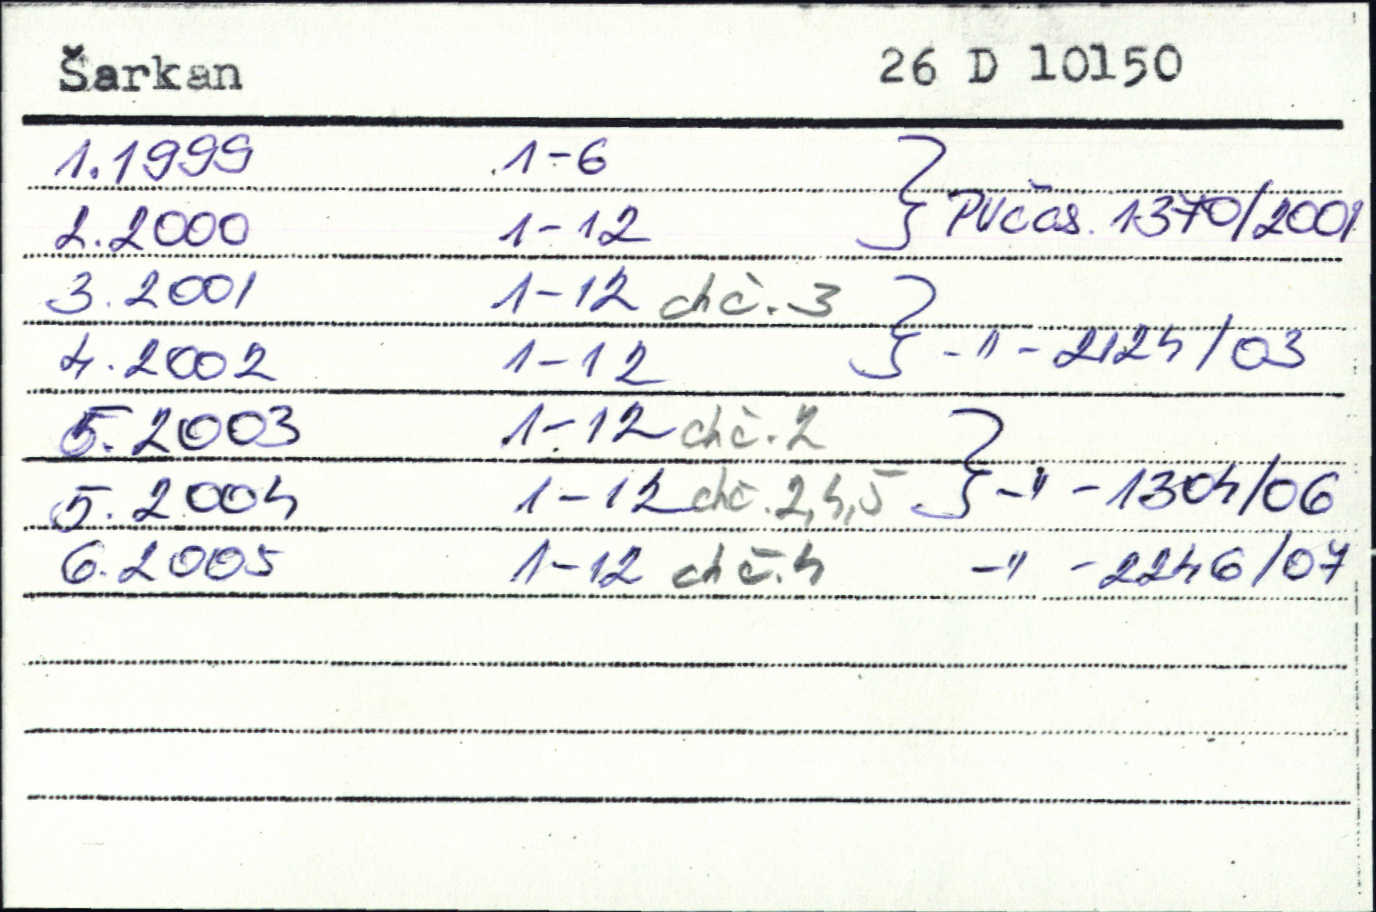 Šarkan 26 D 10150
1.1999 1-6
2.2000 1-12 } PVčas. 1370/2001
3.2001 1-12 chč.3
4.2002 1-12 } -"- 2124/03
5.2003 1-12 chč.2
5.2004 1-12 chč.2,4,5 } -"- 1304/06
6.2005 1-12 chč.4 -" -2246/07